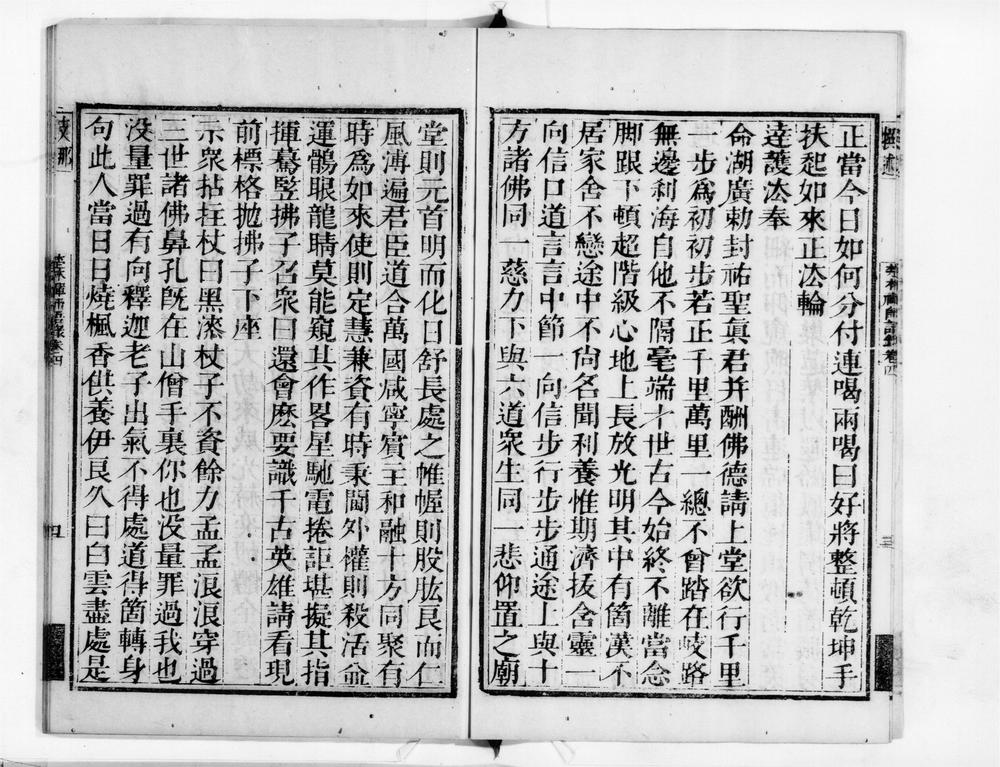 正當今日如何分付連喝兩喝曰好將整頓乾坤手
扶起如來正法輪
達護法奉
命湖廣勅封祐聖眞君并酬佛德請上堂欲行千里
一步爲初初步若正千里萬里一總不曾踏在岐路
無邊刹海自他不隔毫端十世古今始終不離當念
脚跟下頓超階級心地上長放光明其中有箇漢不
居家舍不戀途中不尙名聞利養惟期濟拔含靈一
向信口道言言中節一向信步行步步通途上與十
方諸佛同一慈力下與六道衆生同一悲仰置之廟
堂則元首明而化日舒長處之帷幄則股肱良而仁
風溥遍君臣道合萬國咸寧賓主和融十方同聚有
時爲如來使則定慧兼資有時秉閫外權則殺活並
運鶻眼龍睛莫能窺其作畧星馳電捲詎堪擬其指
揮驀豎拂子召衆曰還會麽要識千古英雄請看現
前標格拋拂子下座
示衆拈拄杖曰黑漆杖子不資餘力孟孟浪浪穿過
三世諸佛鼻孔旣在山僧手裏你也没量罪過我也
没量罪過有向釋迦老子出氣不得處道得箇轉身
句此人當日日燒楓香供養伊良久曰白雲盡處是
支那
四
撰述
三